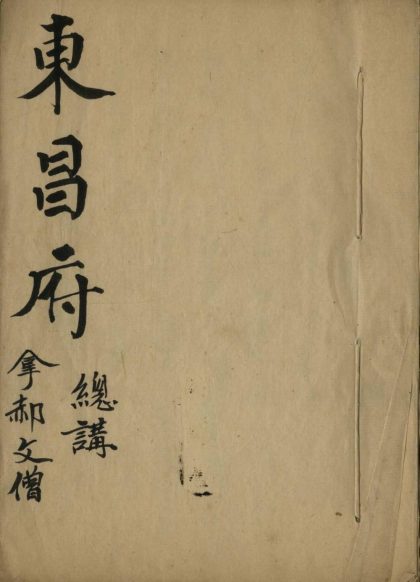 東昌府
總講
拿郝文僧